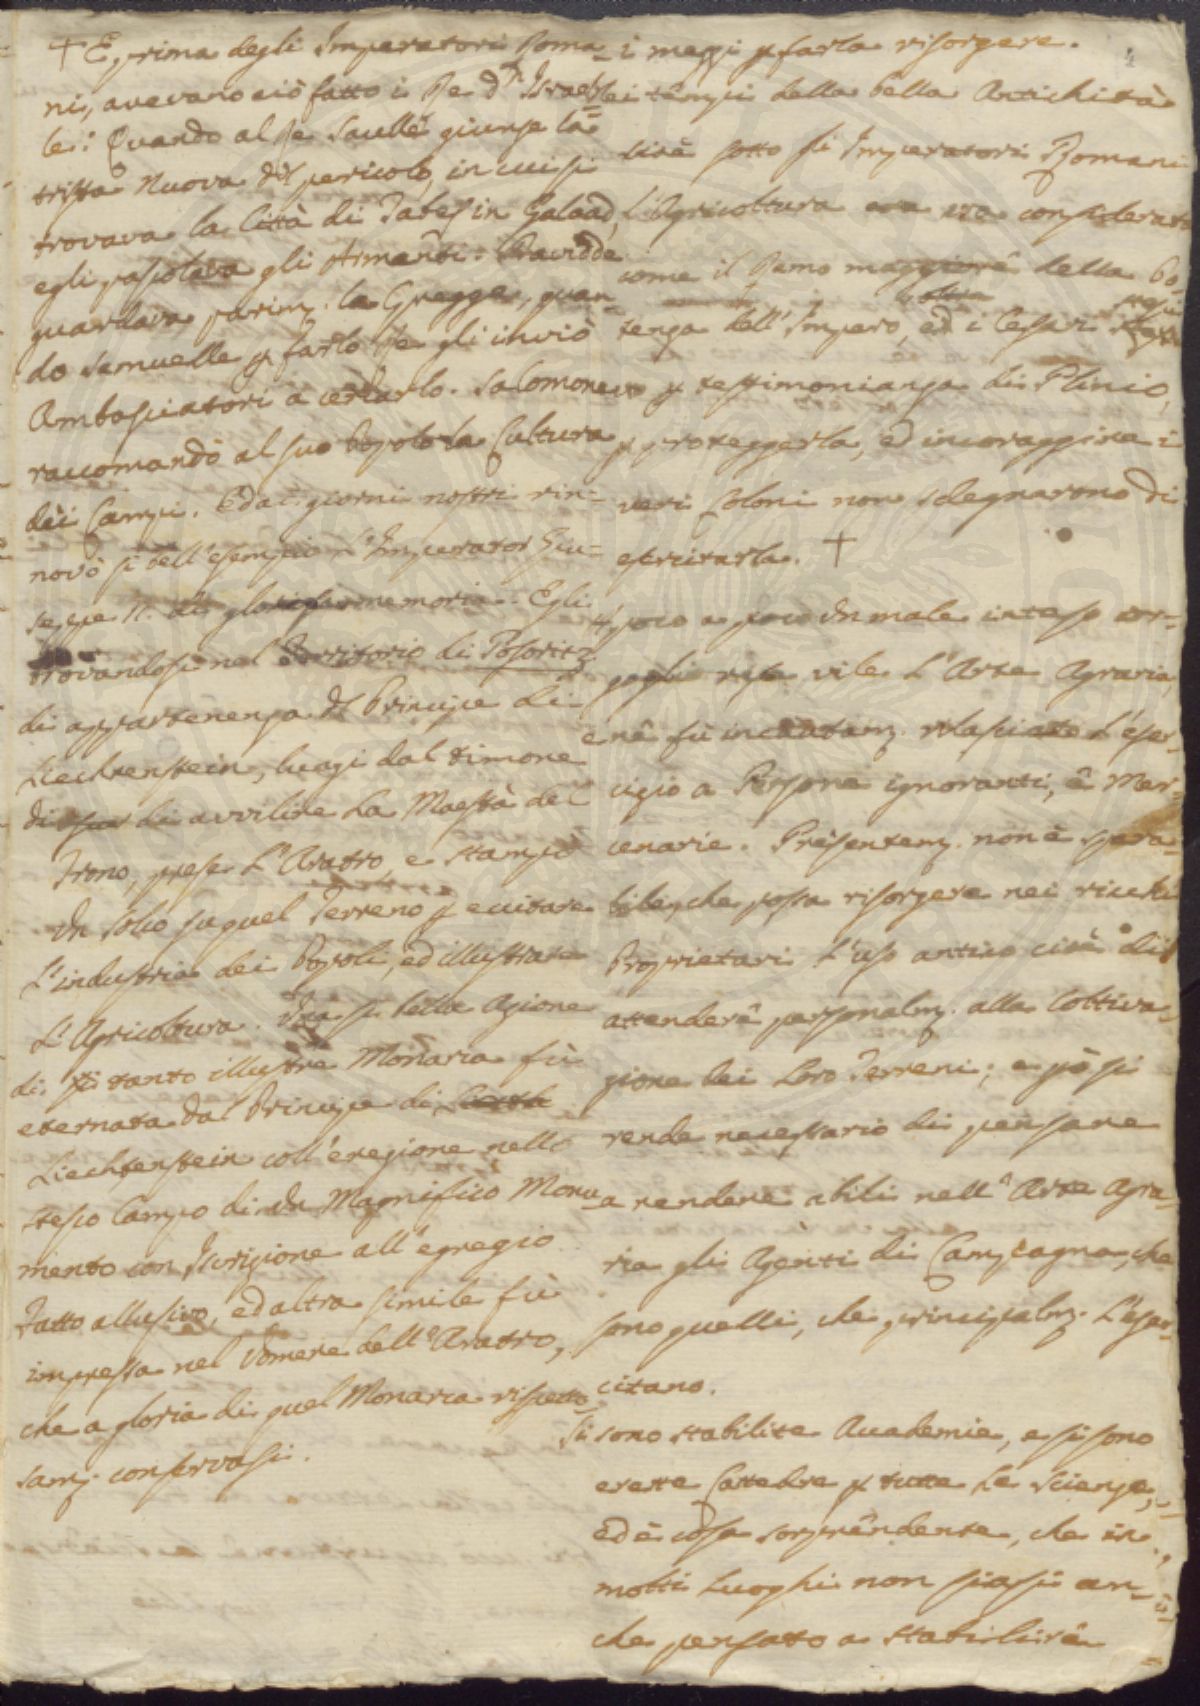 + E, prima degli Imperatori Roma-
ni, avevano ciò fatto i Re d' Israel-
le: Quando al Re Saulle giunse la
trista Nuova del pericolo, in cui si
trovava la Città di Jabes in Galaad,
egli pascolava gli Armenti. Davidde
guardava parim. la Gregge, quan-
do Samuelle p farlo Re gli inviò
Ambasciatori a cercarlo. Salomone
raccomandò al suo Popolo la Cultura
dei Campi. Ed ai giorni nostri rin-
novò si bell'esempio l'Imperator Giu-
seppe II. di gloriosa memoria. Egli
trovandosi nel Territorio di Posoritz
di appartenenza del Principe di
Liechtenstein, lungi dal timore
di avvilire La Maestà del
Trono, prese L'Aratro, e stampò
Un Solco su quel Terreno p eccitare
L'industria dei Popoli, ed illustrare
L'Agricoltura. Una si bella Azione
di tanto illustre Monarca fù
eternata dal Principe di
Liechtenstein coll'erezione nello
stesso Campo di Un Magnifico Monu-
mento con Iscrizione all'egregio
Fatto allusivo, ed altra simile fù
impressa nel Vomere dell'Aratro,
che a gloria di quel Monarca rispetto-
sam. conservasi.
i mezzi p farla risorgere.
Nei tempi della bella Antichità
cioè sotto gl' Imperatori Romani
L'Agricoltura era considerata
come il Ramo maggiore della Po-
tenza dell'Impero, ed i Cesari stessi
p testimonianza di Plinio,
p proteggerla, ed incoraggire i
veri Coloni non sdegnarono di
esercitarla. +
A poco a poco Un male inteso or-
goglio rese vile L'Arte Agraria,
e nè fù incautam. rilasciato L'eser-
cizio a Persone ignoranti, e Mer-
cenarie. Presentem. non è spera-
bile, che possa risorgere nei ricchi
Proprietari L'uso antico cioè di
attendere personalm. alla Coltiva-
zione dei Loro Terreni; e pò si
rende necessario di pensare
a rendere abili nell'Arte Agra-
ria gli Agenti di Campagna, che
sono quelli, che principalm. L'eser-
citano.
Si sono stabilite Accademie, e si sono
erette Cattedre p tutte Le Scienze,
ed è cosa sorprendente, che in
molti Luoghi non siasi an-
che pensato a stabilire